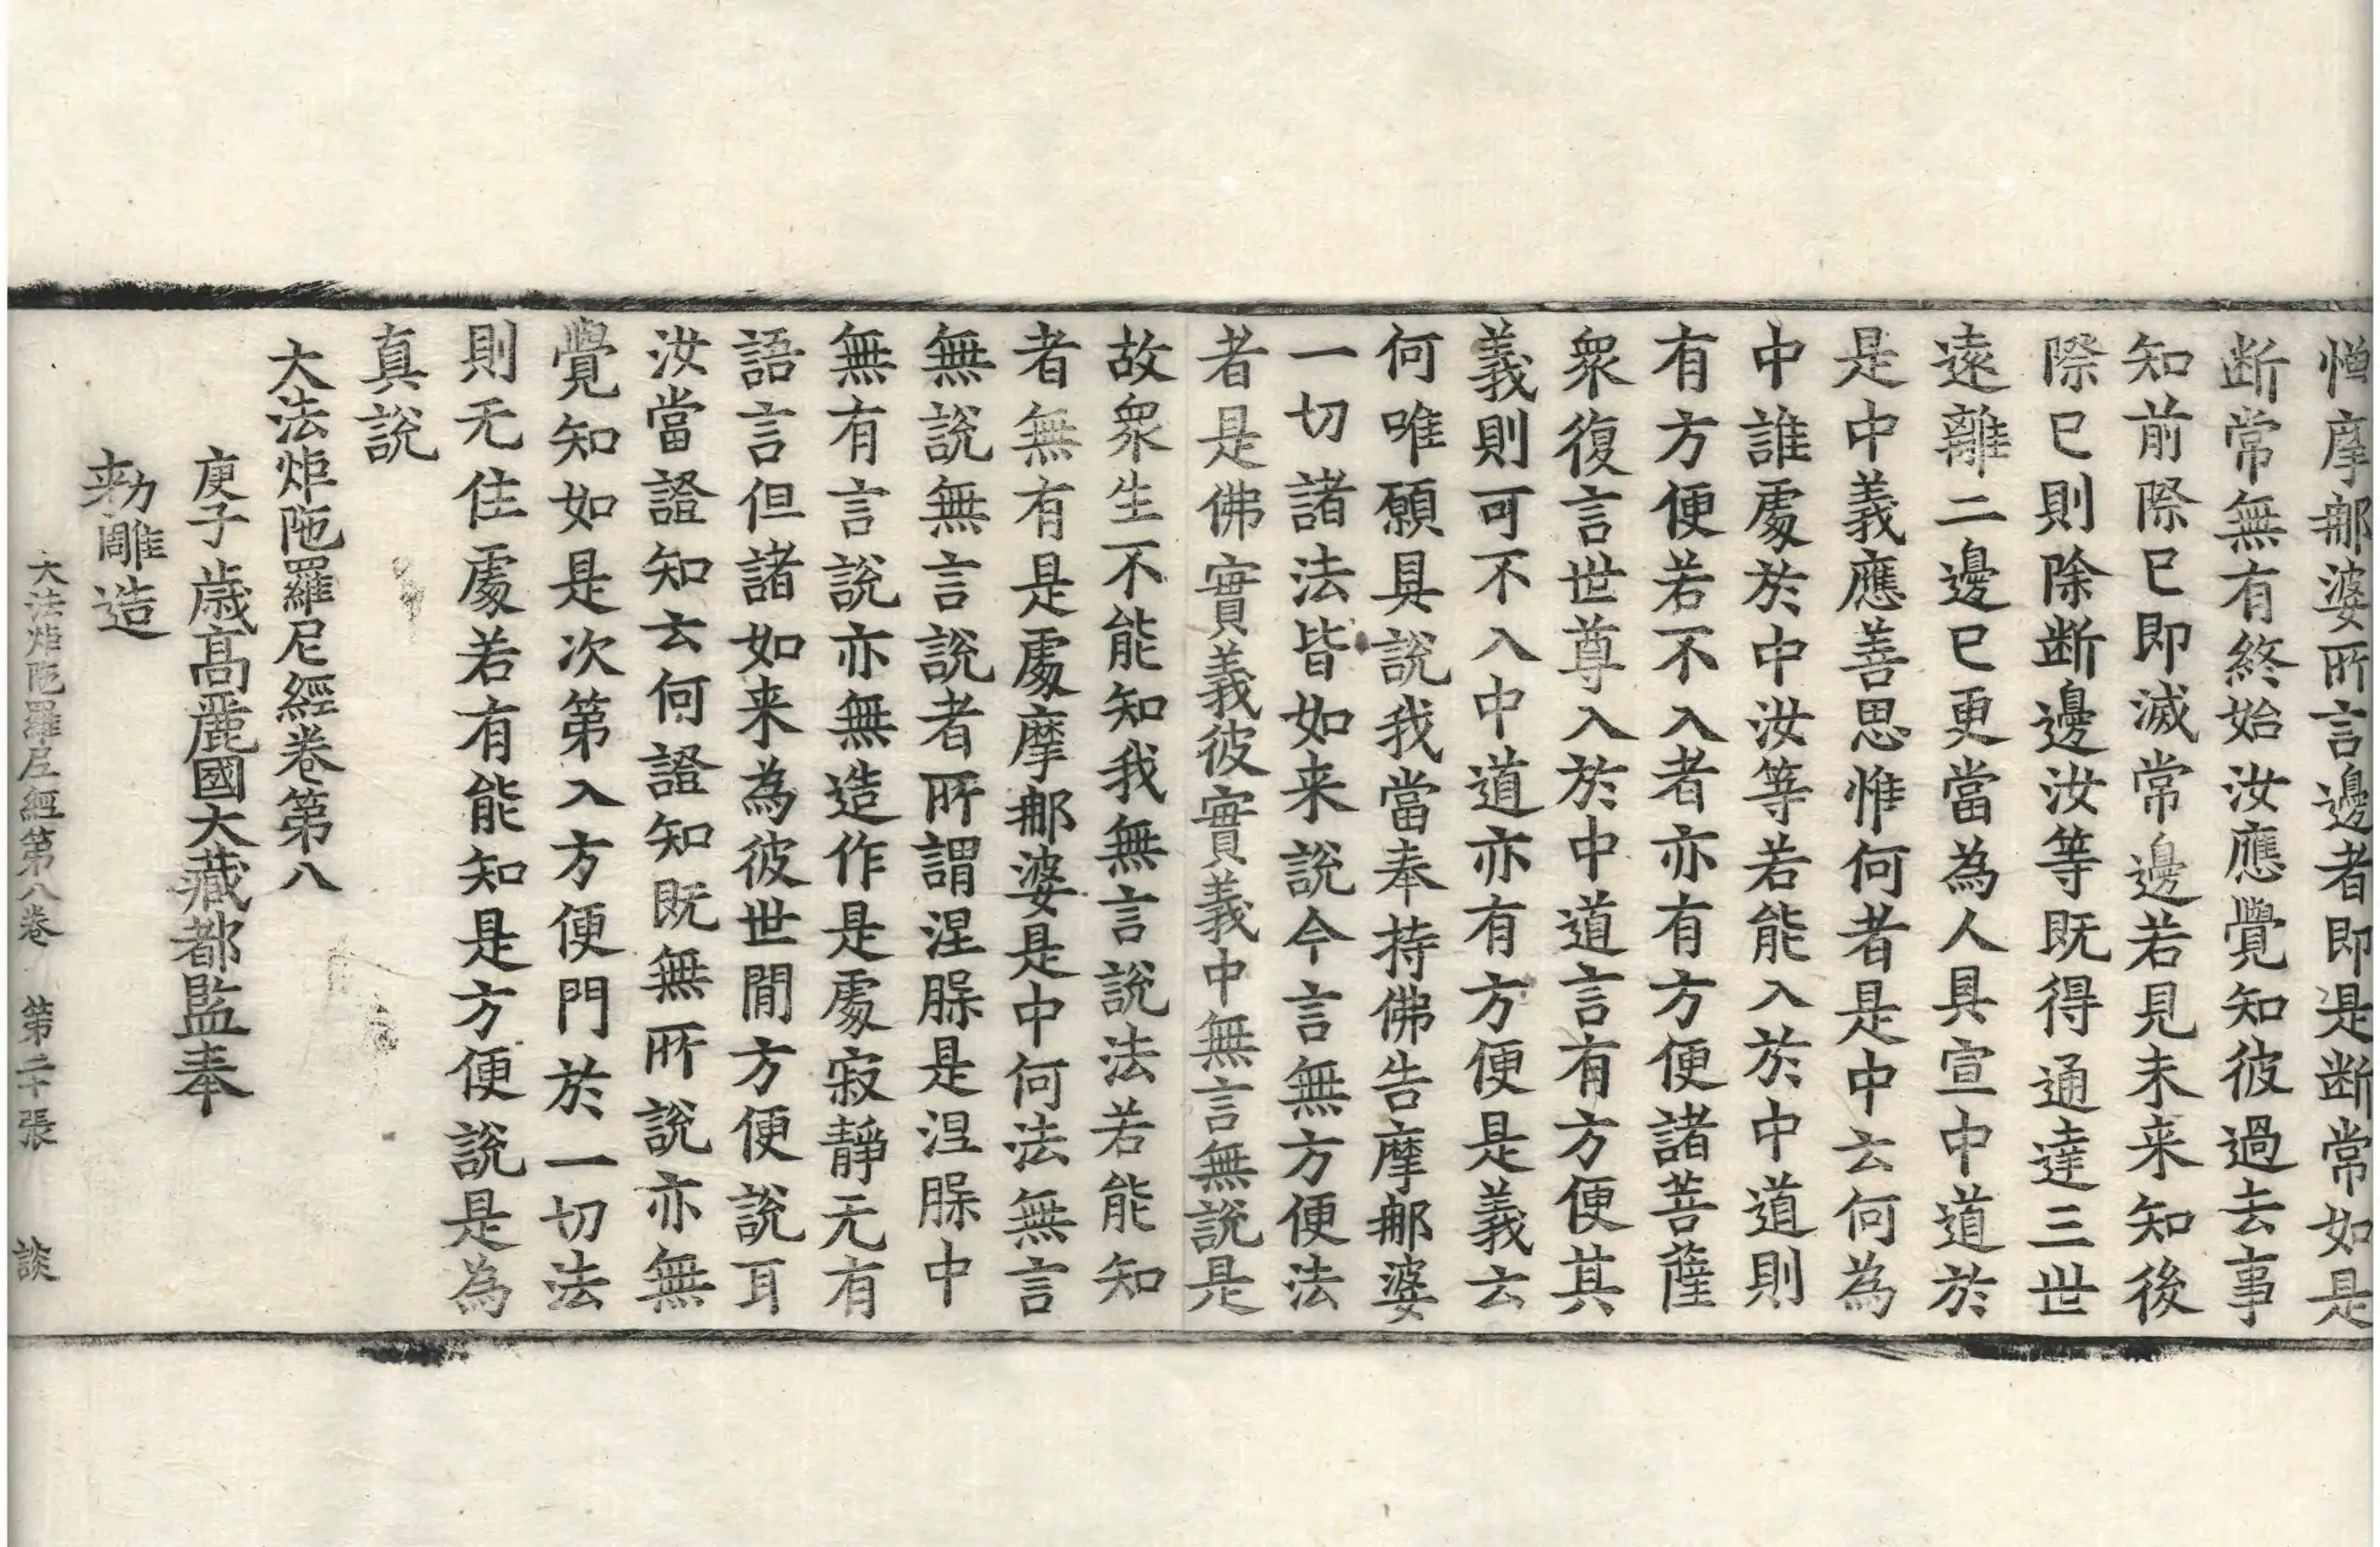 憎摩䣧婆所言邊者即是断常如是
断常無有終始汝應覺知彼過去事
知前際已即滅常邊若見未来知後
際已則除断邊汝等既得通達三世
遠離二邊已更當為人具宣中道於
是中義應善思惟何者是中云何為
中誰處於中汝等若能入於中道則
有方便若不入者亦有方便諸菩薩
衆復言世尊入於中道言有方便其
義則可不入中道亦有方便是義云
何唯願具說我當奉持佛告摩䣧婆
一切諸法皆如来說今言無方便法
者是佛實義彼實義中無言無說是
故衆生不能知我無言說法若能知
者無有是處摩䣧婆是中何法無言
無說無言說者所謂涅槃是涅槃中
無有言說亦無造作是處寂靜无有
語言但諸如来為彼世間方便說耳
汝當證知云何證知既無所說亦無
覺知如是次第入方便門於一切法
則无住處若有能知是方便說是為
真說
大法炬陁羅尼經卷第八
庚子歳髙麗國大藏都監奉
勑雕造
大法炬陁羅尼經第八卷 第二十張 談